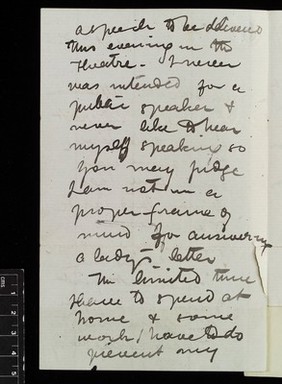 a speech to be delivered
this evening in the
Theatre - I never
was intended for a
public speaker &
never like to hear
myself speaking so
you may judge
I am not in a
proper frame of
mind for answering
a lady's letter
The limited time
I have to spend at
home & some
work I have to do
prevent my
cms
1
2
3
4
5